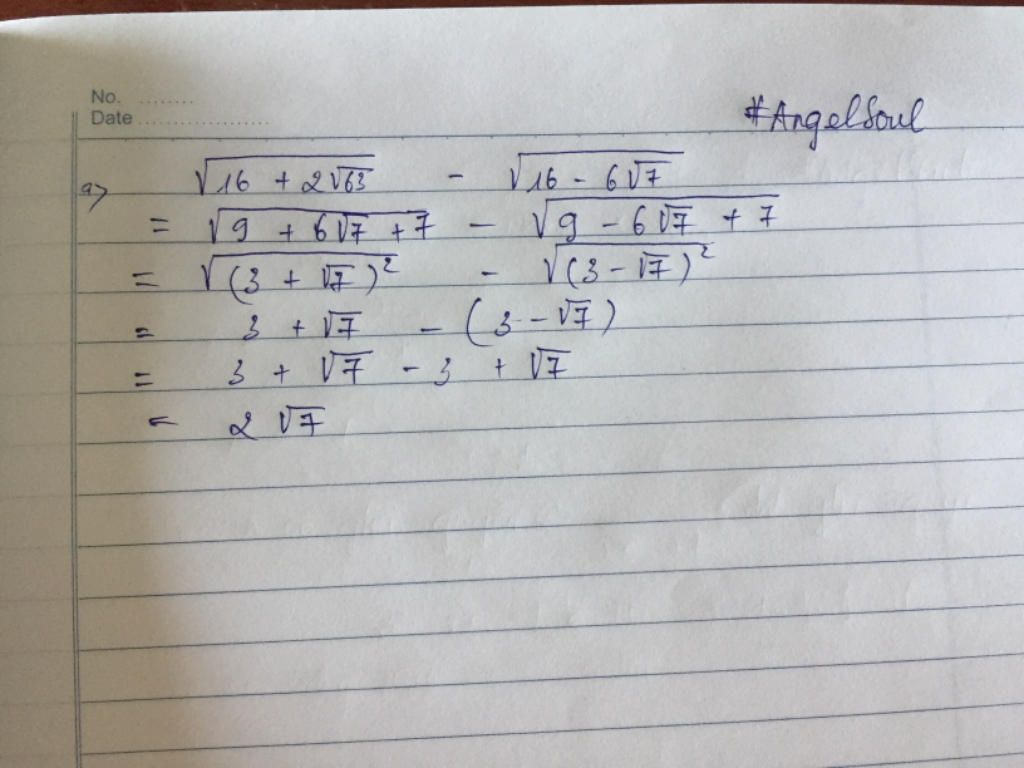 No. ........
Date ...................
#AngelSoul
a) √(16 + 2√63) - √(16 - 6√7)
= √(9 + 6√7 + 7) - √(9 - 6√7 + 7)
= √((3 + √7)²) - √((3 - √7)²)
= 3 + √7 - (3 - √7)
= 3 + √7 - 3 + √7
= 2√7